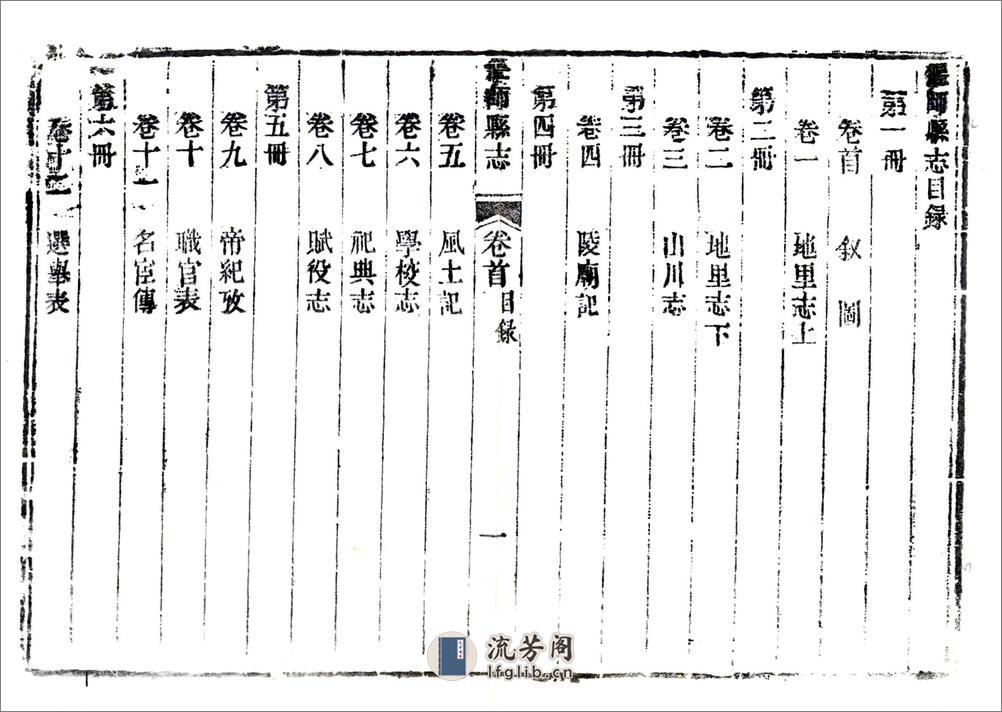 偃師縣志目録
第一冊
卷首 叙 圖
卷一 地里志上
第二冊
卷二 地里志下
卷三 山川志
第三冊
卷四 陵廟記
第四冊
偃師縣志 卷首 目録 一
卷五 風土記
卷六 學校志
卷七 祀典志
卷八 賦役志
第五冊
卷九 帝紀攷
卷十 職官表
卷十一 名宦傳
第六冊
卷十二 選舉表
流芳阁
lfglib.cn